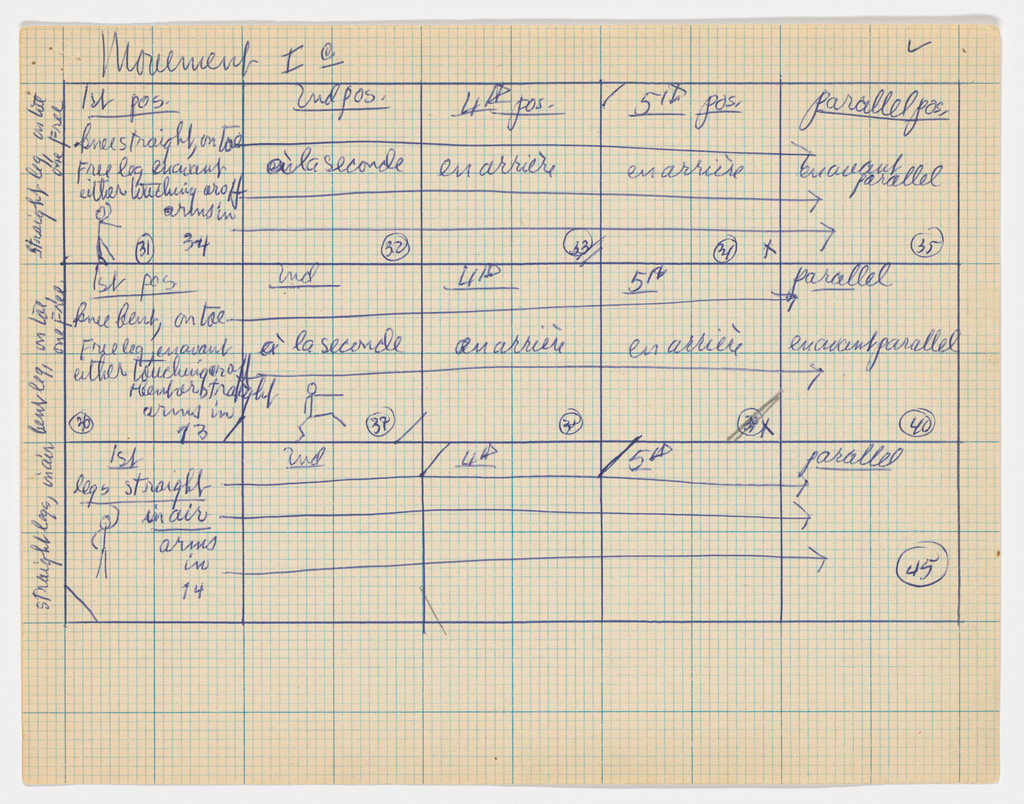 Movement I a
1st pos.
2nd pos.
4th pos.
5th pos.
parallel pos.
Straight leg, on toe
one Free
knee straight, on toe
Free leg enavant
either touching or off
arms in
à la seconde
en arrière
en arrière
enavant
parallel
31
32
33
34
x
35
1st pos
2nd
4th
5th
parallel
bent leg, on toe,
one Free.
knee bent, on toe
Free leg, enavant
either touching or off
arms in
13
à la seconde
en arrière
en arrière
enavant parallel
36
37
x
40
1st
2nd
4th
5th
parallel
straight legs, in air
legs straight
in air
arms
in
14
45